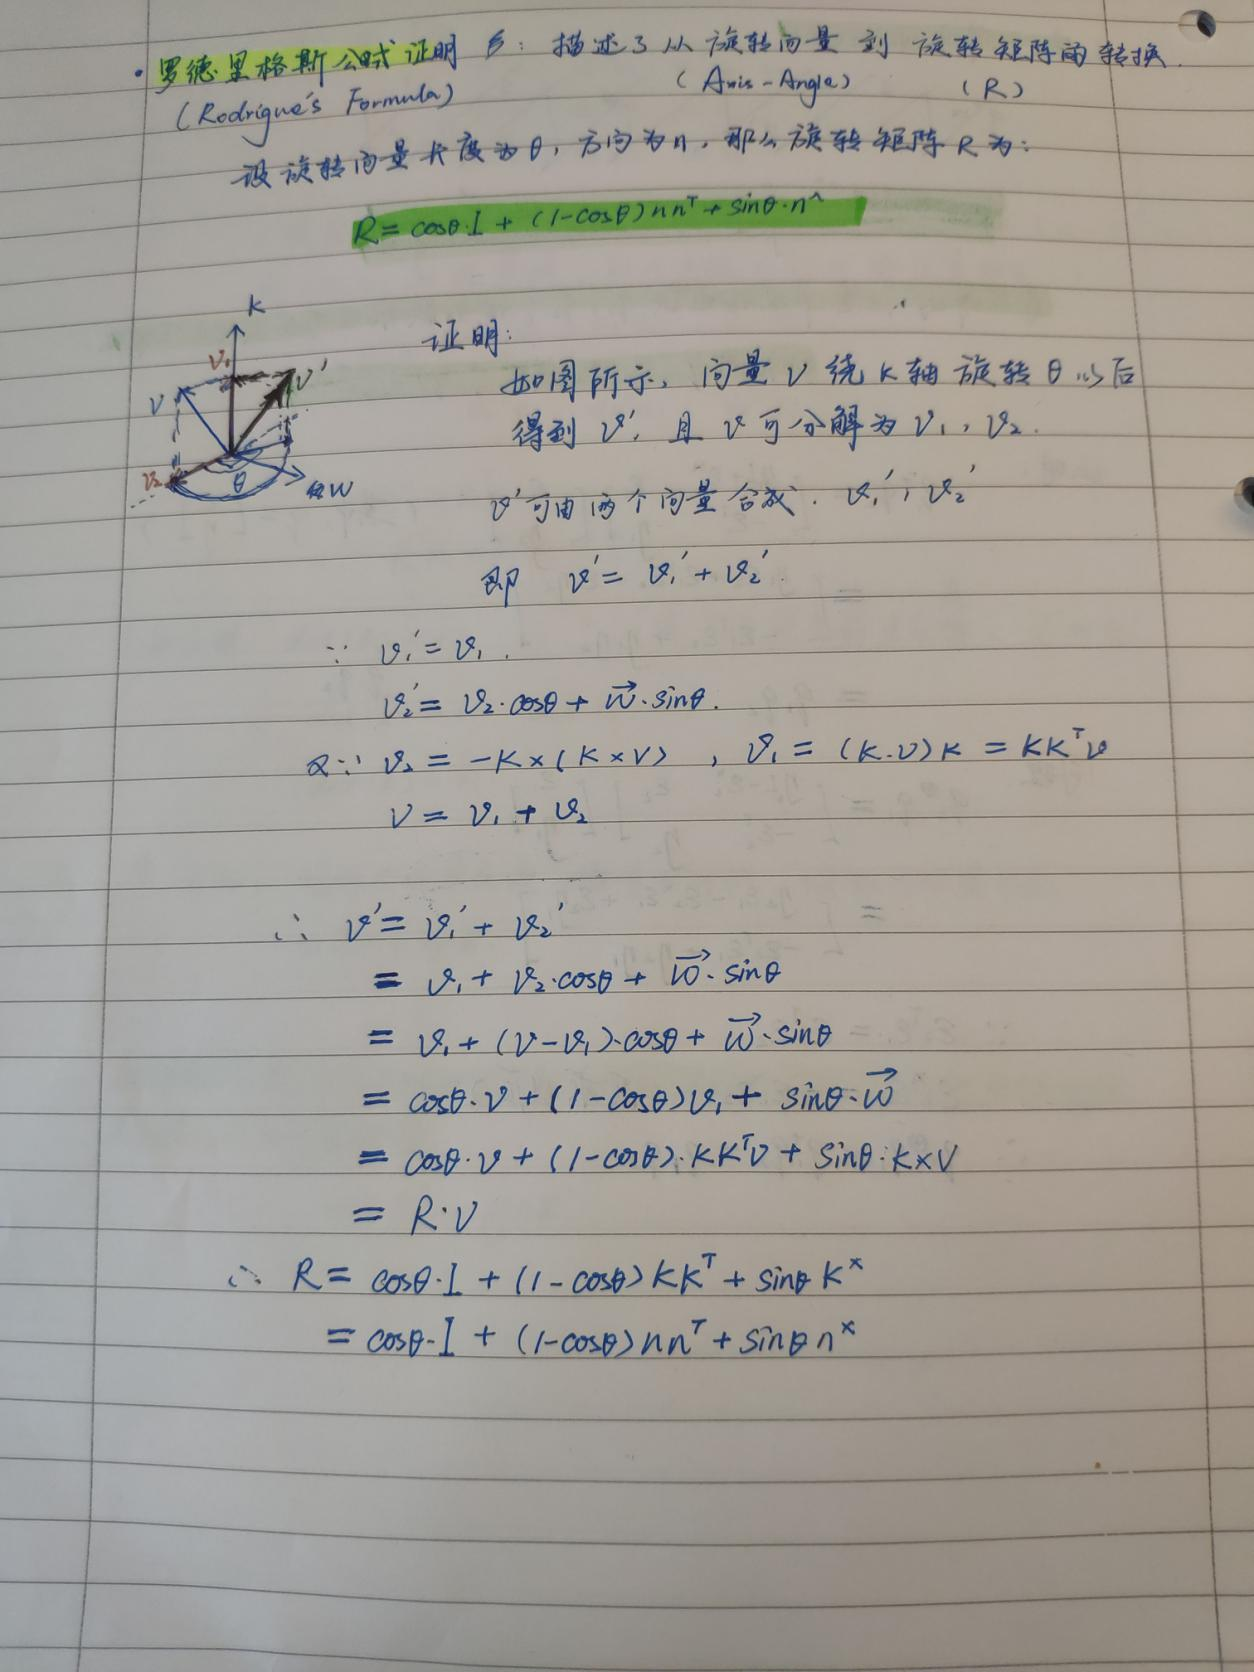 · 罗德里格斯公式证明 : 描述了从旋转向量到旋转矩阵的转换.
(Rodrigue's Formula) (Axis-Angle) (R)
设旋转向量长度为θ, 方向为n, 那么旋转矩阵R为:
R = cosθ·I + (1-cosθ)nnᵀ + sinθ·n^
K
V₁
V'
V
V₂
θ
W
证明:
如图所示, 向量 v 绕 K 轴 旋转 θ 以后
得到 v', 且 v 可分解为 v₁, v₂.
v' 可由两个向量合成. v₁', v₂'
即 v' = v₁' + v₂'.
∵ v₁' = v₁.
v₂' = v₂·cosθ + w⃗·sinθ.
又∵ v₂ = -K×(K×V) , v₁ = (K·v)K = KKᵀv
V = v₁ + v₂
∴ v' = v₁' + v₂'
= v₁ + v₂·cosθ + w⃗·sinθ
= v₁ + (v-v₁)·cosθ + w⃗·sinθ
= cosθ·v + (1-cosθ)v₁ + sinθ·w⃗
= cosθ·v + (1-cosθ)·KKᵀv + sinθ·K×V
= R·V
∴ R = cosθ·I + (1-cosθ)KKᵀ + sinθ Kˣ
= cosθ·I + (1-cosθ)nnᵀ + sinθ nˣ